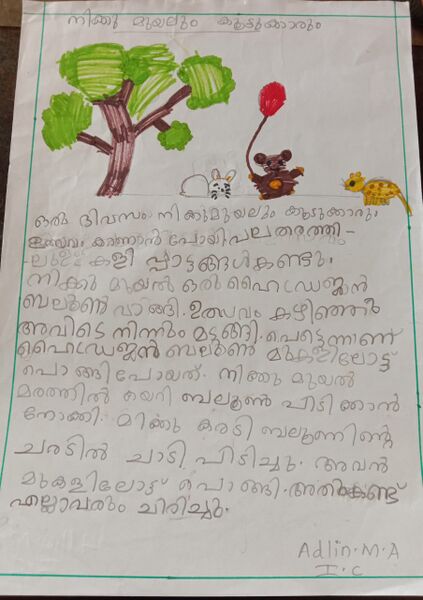 നിക്കു മുയലും കൂട്ടുക്കാരും
ഒരു ദിവസം നിക്കുമുയലും കൂട്ടുക്കാരും
ഉത്സവം കാണാൻ പോയി പലതരത്തി-
ലുള്ള കളി പ്പാട്ടങ്ങൾകണ്ടു.
നിക്കു മുയൽ ഒരു ഹൈഡ്രജൻ
ബലൂൺ വാങ്ങി. ഉത്സവം കഴിഞ്ഞ്
അവിടെ നിന്നും മടങ്ങി. പെട്ടെന്നാണ്
ഹൈഡ്രജൻ ബലൂൺ മുകളിലോട്ട്
പൊങ്ങിപോയത്. നിക്കു മുയൽ
മരത്തിൽ കയറി ബലൂൺ പിടിക്കാൻ
നോക്കി. മിക്കു കരടി ബലൂണിന്റെ
ചരടിൽ ചാടി പിടിച്ചു. അവൻ
മുകളിലോട്ട് പൊങ്ങി. അതുകണ്ട്
എല്ലാവരും ചിരിച്ചു.
Adlin.M.A
I.C